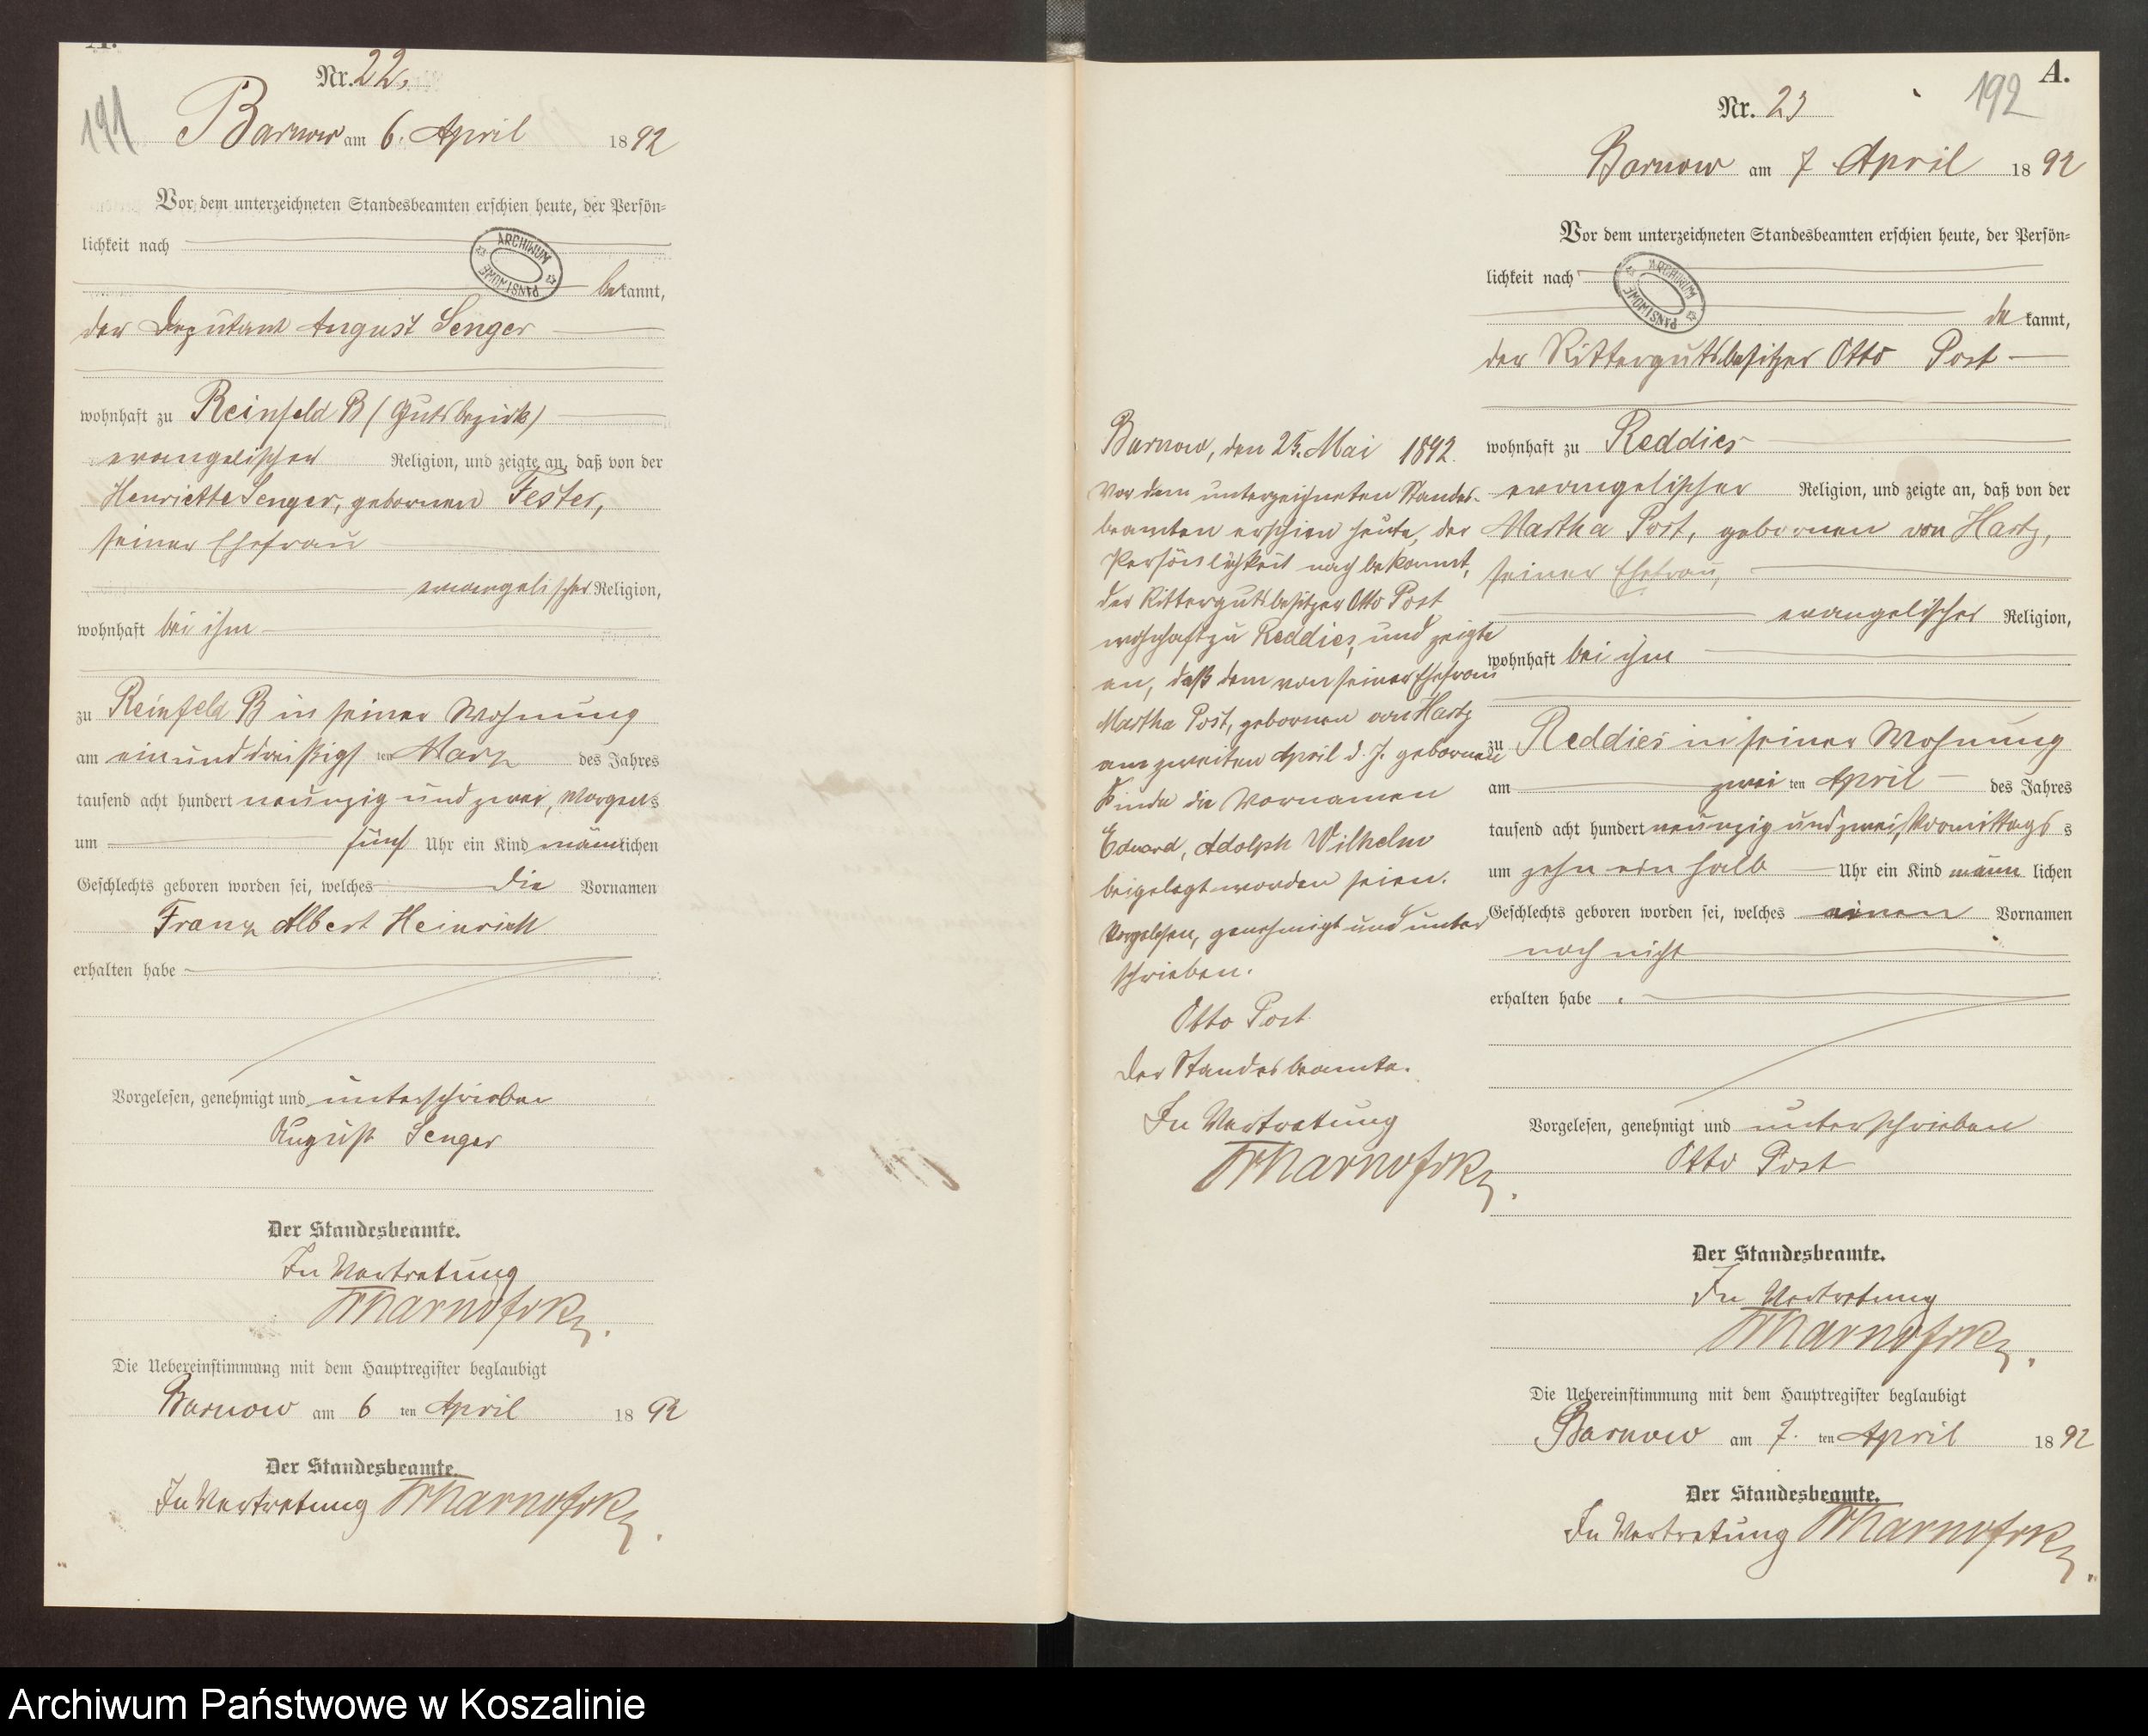 A.
Nr. 22.
191
Barnow am 6. April 1892
Vor dem unterzeichneten Standesbeamten erschien heute, der Persön-
lichkeit nach
ARCHIWUM PAŃSTWOWE
bekannt,
der Deputant August Senger
wohnhaft zu Reinfeld B (Gutsbezirk)
evangelischer Religion, und zeigte an, daß von der
Henriette Senger, gebornen Fester,
seiner Ehefrau
evangelischer Religion,
wohnhaft bei ihm
zu Reinfeld B in seiner Wohnung
am einunddreißigsten März des Jahres
tausend acht hundert neunzig und zwei, Morgens
um fünf Uhr ein Kind männlichen
Geschlechts geboren worden sei, welches die Vornamen
Franz Albert Heinrich
erhalten habe
Vorgelesen, genehmigt und unterschrieben
August Senger
Der Standesbeamte.
In Vertretung
Die Uebereinstimmung mit dem Hauptregister beglaubigt
Barnow am 6 ten April 1892
Der Standesbeamte.
In Vertretung
A.
192
Nr. 23
Barnow am 7 April 1892
Vor dem unterzeichneten Standesbeamten erschien heute, der Persön-
lichkeit nach
ARCHIWUM PAŃSTWOWE
be kannt,
der Rittergutsbesitzer Otto Post
wohnhaft zu Reddies
evangelischer Religion, und zeigte an, daß von der
Martha Post, gebornen von Hartz,
seiner Ehefrau,
evangelischer Religion,
wohnhaft bei ihm
zu Reddies in seiner Wohnung
am zwei ten April des Jahres
tausend acht hundert neunzig und zwei, Vormittags s
um zehn ein halb Uhr ein Kind männ lichen
Geschlechts geboren worden sei, welches einen Vornamen
noch nicht
erhalten habe.
Vorgelesen, genehmigt und unterschrieben
Otto Post
Der Standesbeamte.
In Vertretung
Die Uebereinstimmung mit dem Hauptregister beglaubigt
Barnow am 7. ten April 1892
Der Standesbeamte.
In Vertretung
Barnow, den 25. Mai 1892.
Vor dem unterzeichneten Standes-
beamten erschien heute, der
Persönlichkeit nach bekannt,
der Rittergutsbesitzer Otto Post
wohnhaft zu Reddies, und zeigte
an, daß dem von seiner Ehefrau
Martha Post, gebornen von Hartz
am zweiten April d. J. gebornen
Kinde die Vornamen
Eduard, Adolph Wilhelm
beigelegt worden seien.
Vorgelesen, genehmigt und unter
schrieben.
Otto Post
Der Standesbeamte.
In Vertretung
Archiwum Państwowe w Koszalinie